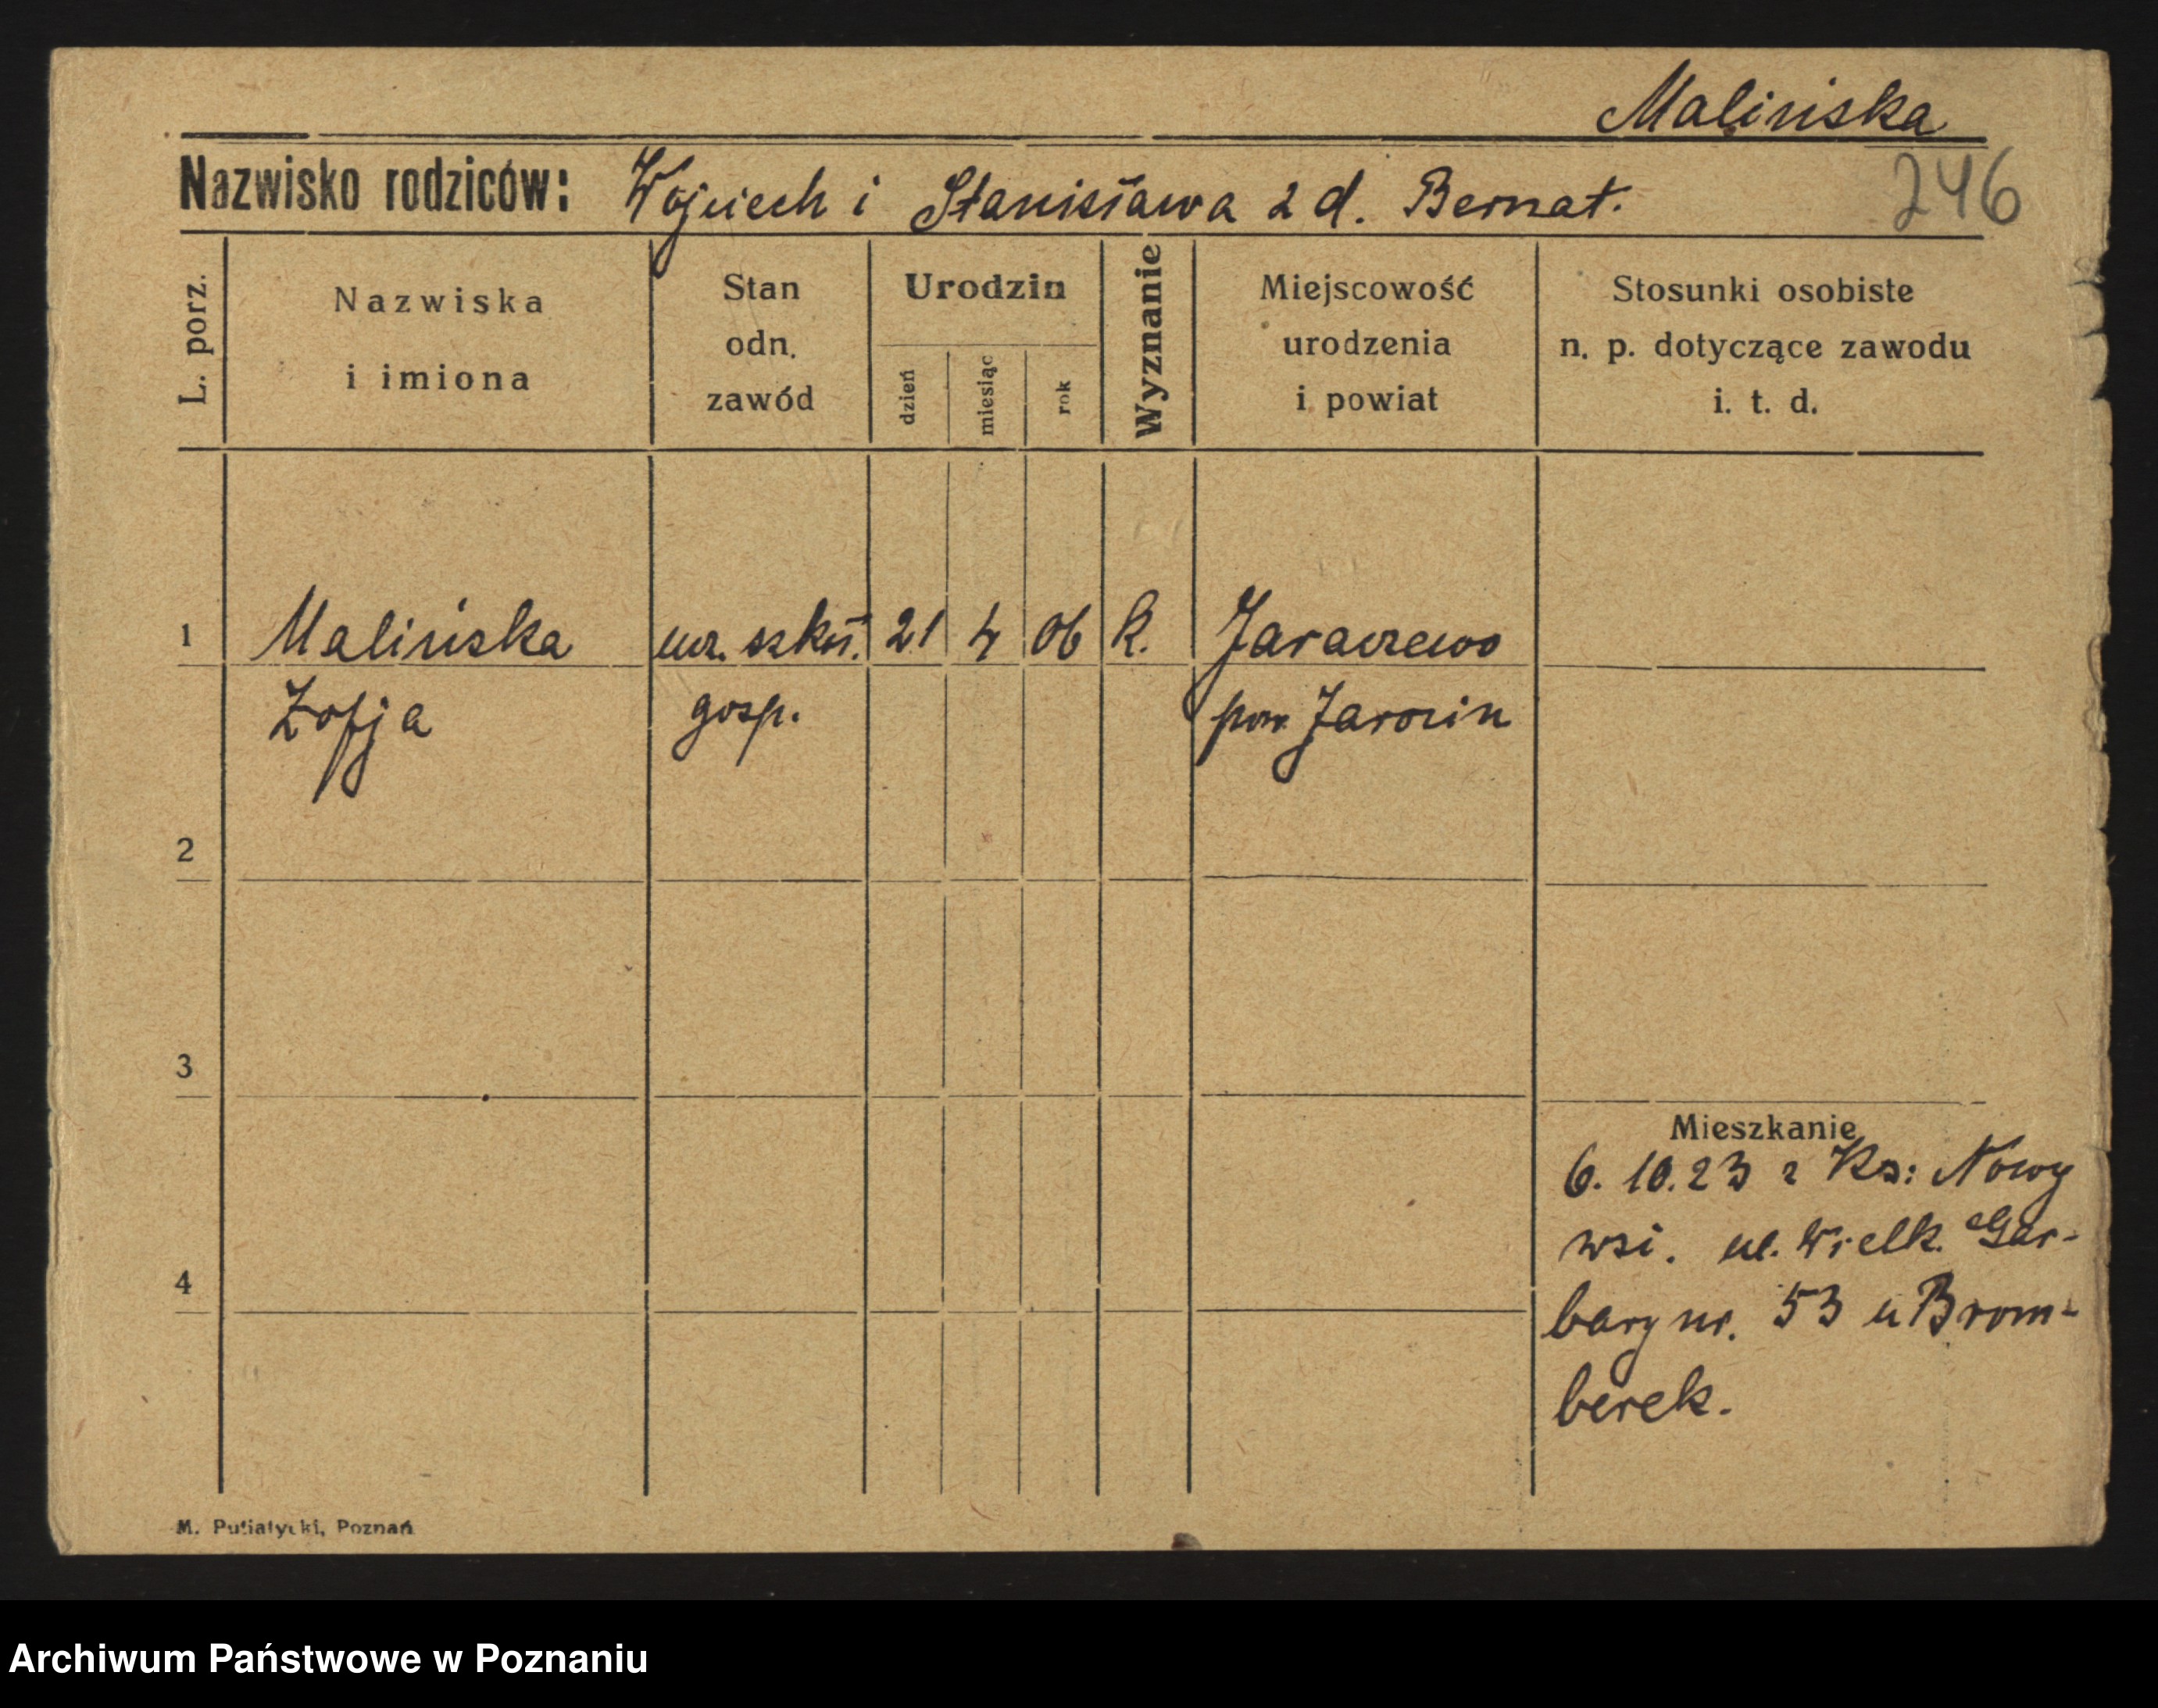 Malińska
Nazwisko rodziców: Wojciech i Stanisława z d. Bernat.
246
L. porz.
Nazwiska
i imiona
Stan
odn.
zawód
Urodzin
dzień
miesiąc
rok
Wyznanie
Miejscowość
urodzenia
i powiat
Stosunki osobiste
n. p. dotyczące zawodu
i. t. d.
1 Malińska ucz. szkoł. 21 4 06 k. Jaraczewo
Zofja gosp. pow. Jarocin
2
3
4
Mieszkanie
6. 10. 23 z Ks: Nowy
wsi. ul. Wielk. Gar-
bary nr. 53 u Brom-
berek.
M. Putiatycki, Poznań
Archiwum Państwowe w Poznaniu